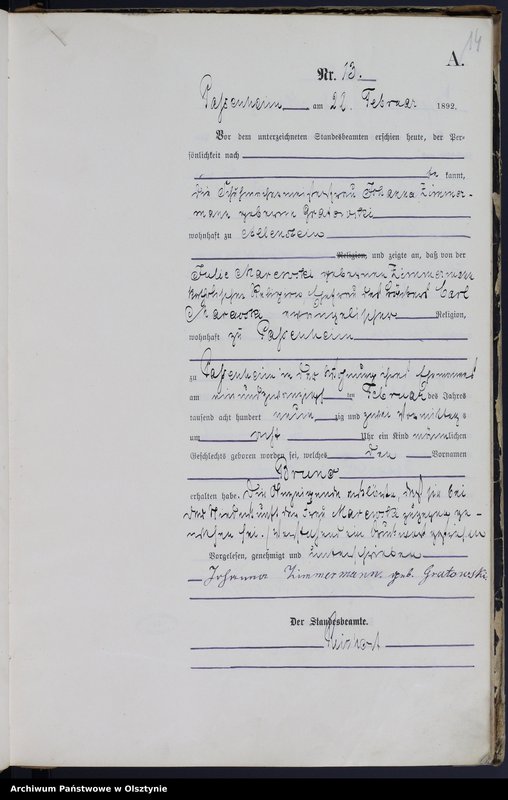 14
A.
Nr. 13.
Passenheim am 22. Februar 1892.
Vor dem unterzeichneten Standesbeamten erschien heute, der Per-
sönlichkeit nach
kannt,
die Johanna Zimmer-
mann geborene Gratowski
wohnhaft zu Allenstein
Religion, und zeigte an, daß von der
Julie Marewski geborenen Zimmermann
Ehefrau des Carl
evangelischer Religion,
wohnhaft zu Passenheim
zu Passenheim in der Wohnung ihres Ehemannes
am ein und zwanzigsten Februar des Jahres
tausend acht hundert neun zig und zwei Vormittags
um acht Uhr ein Kind männlichen
Geschlechts geboren worden sei, welches den Vornamen
Bruno
erhalten habe. Die Anzeigende erklärte, daß sie bei
der Niederkunft der Frau zugegen ge-
wesen sei.
Vorgelesen, genehmigt und unterschrieben
Johanna Zimmermann geb. Gratowski
Der Standesbeamte.
Archiwum Państwowe w Olsztynie